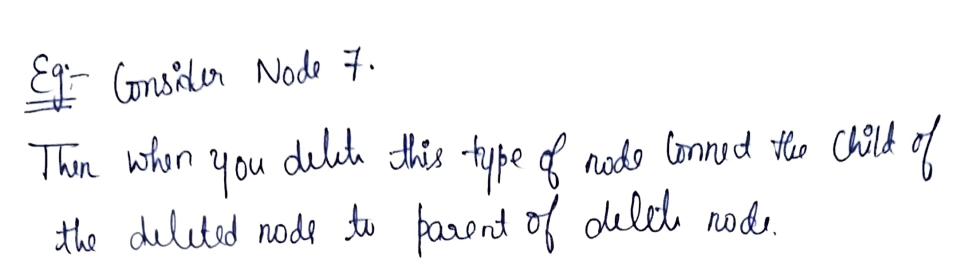 Eg:- Consider Node 7.
Then when you delete this type of node Connect the Child of
the deleted node to parent of delete node.